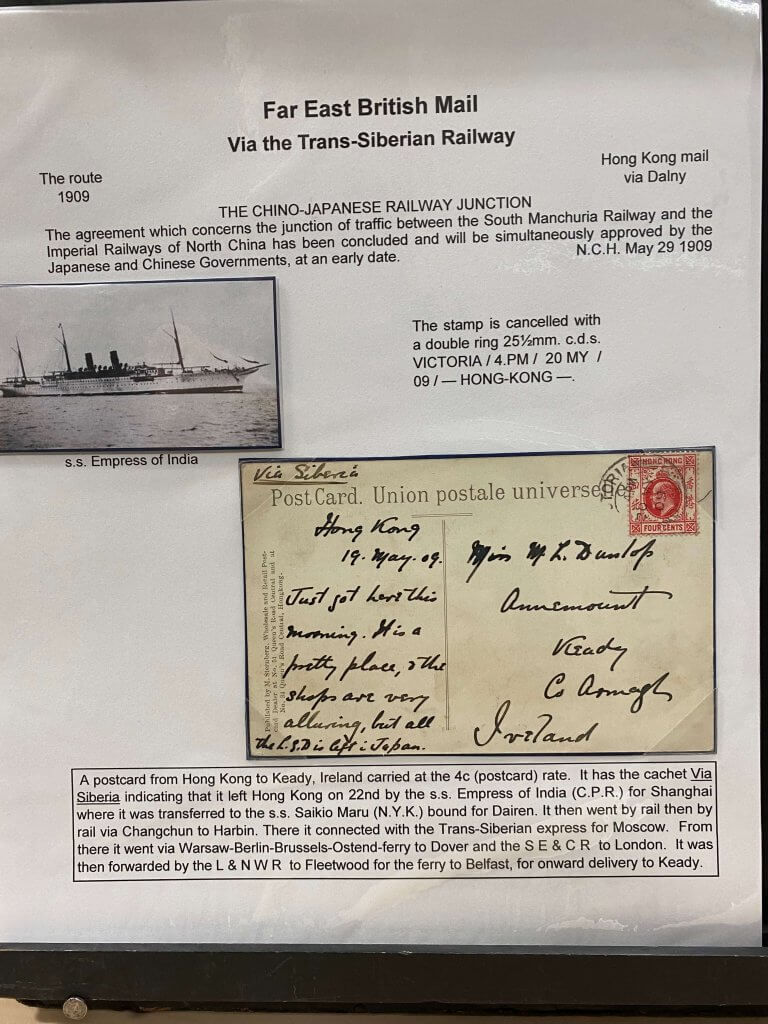 Far East British Mail
Via the Trans-Siberian Railway
The route
1909
Hong Kong mail
via Dalny
THE CHINO-JAPANESE RAILWAY JUNCTION
The agreement which concerns the junction of traffic between the South Manchuria Railway and the
Imperial Railways of North China has been concluded and will be simultaneously approved by the
Japanese and Chinese Governments, at an early date.
N.C.H. May 29 1909
The stamp is cancelled with
a double ring 25½mm. c.d.s.
VICTORIA / 4.PM / 20 MY /
09 / — HONG-KONG —.
s.s. Empress of India
Via Siberia
Post Card. Union postale universe
HONG KONG
FOUR CENTS
Hong Kong
19. May. 09.
Just got here this
morning. It is a
pretty place, & the
shops are very
alluring, but all
the L.S.D is left i Japan.
Published by M. Sternberg, Wholesale and Retail Post-
card Dealer at No. 51 Queen's Road Central and at
No. 31 Queen's Road Central, Hongkong.
Miss M. L. Dunlop
Annemount
Keady
Co Armagh
Ireland
A postcard from Hong Kong to Keady, Ireland carried at the 4c (postcard) rate. It has the cachet Via
Siberia indicating that it left Hong Kong on 22nd by the s.s. Empress of India (C.P.R.) for Shanghai
where it was transferred to the s.s. Saikio Maru (N.Y.K.) bound for Dairen. It then went by rail then by
rail via Changchun to Harbin. There it connected with the Trans-Siberian express for Moscow. From
there it went via Warsaw-Berlin-Brussels-Ostend-ferry to Dover and the S E & C R to London. It was
then forwarded by the L & N W R to Fleetwood for the ferry to Belfast, for onward delivery to Keady.